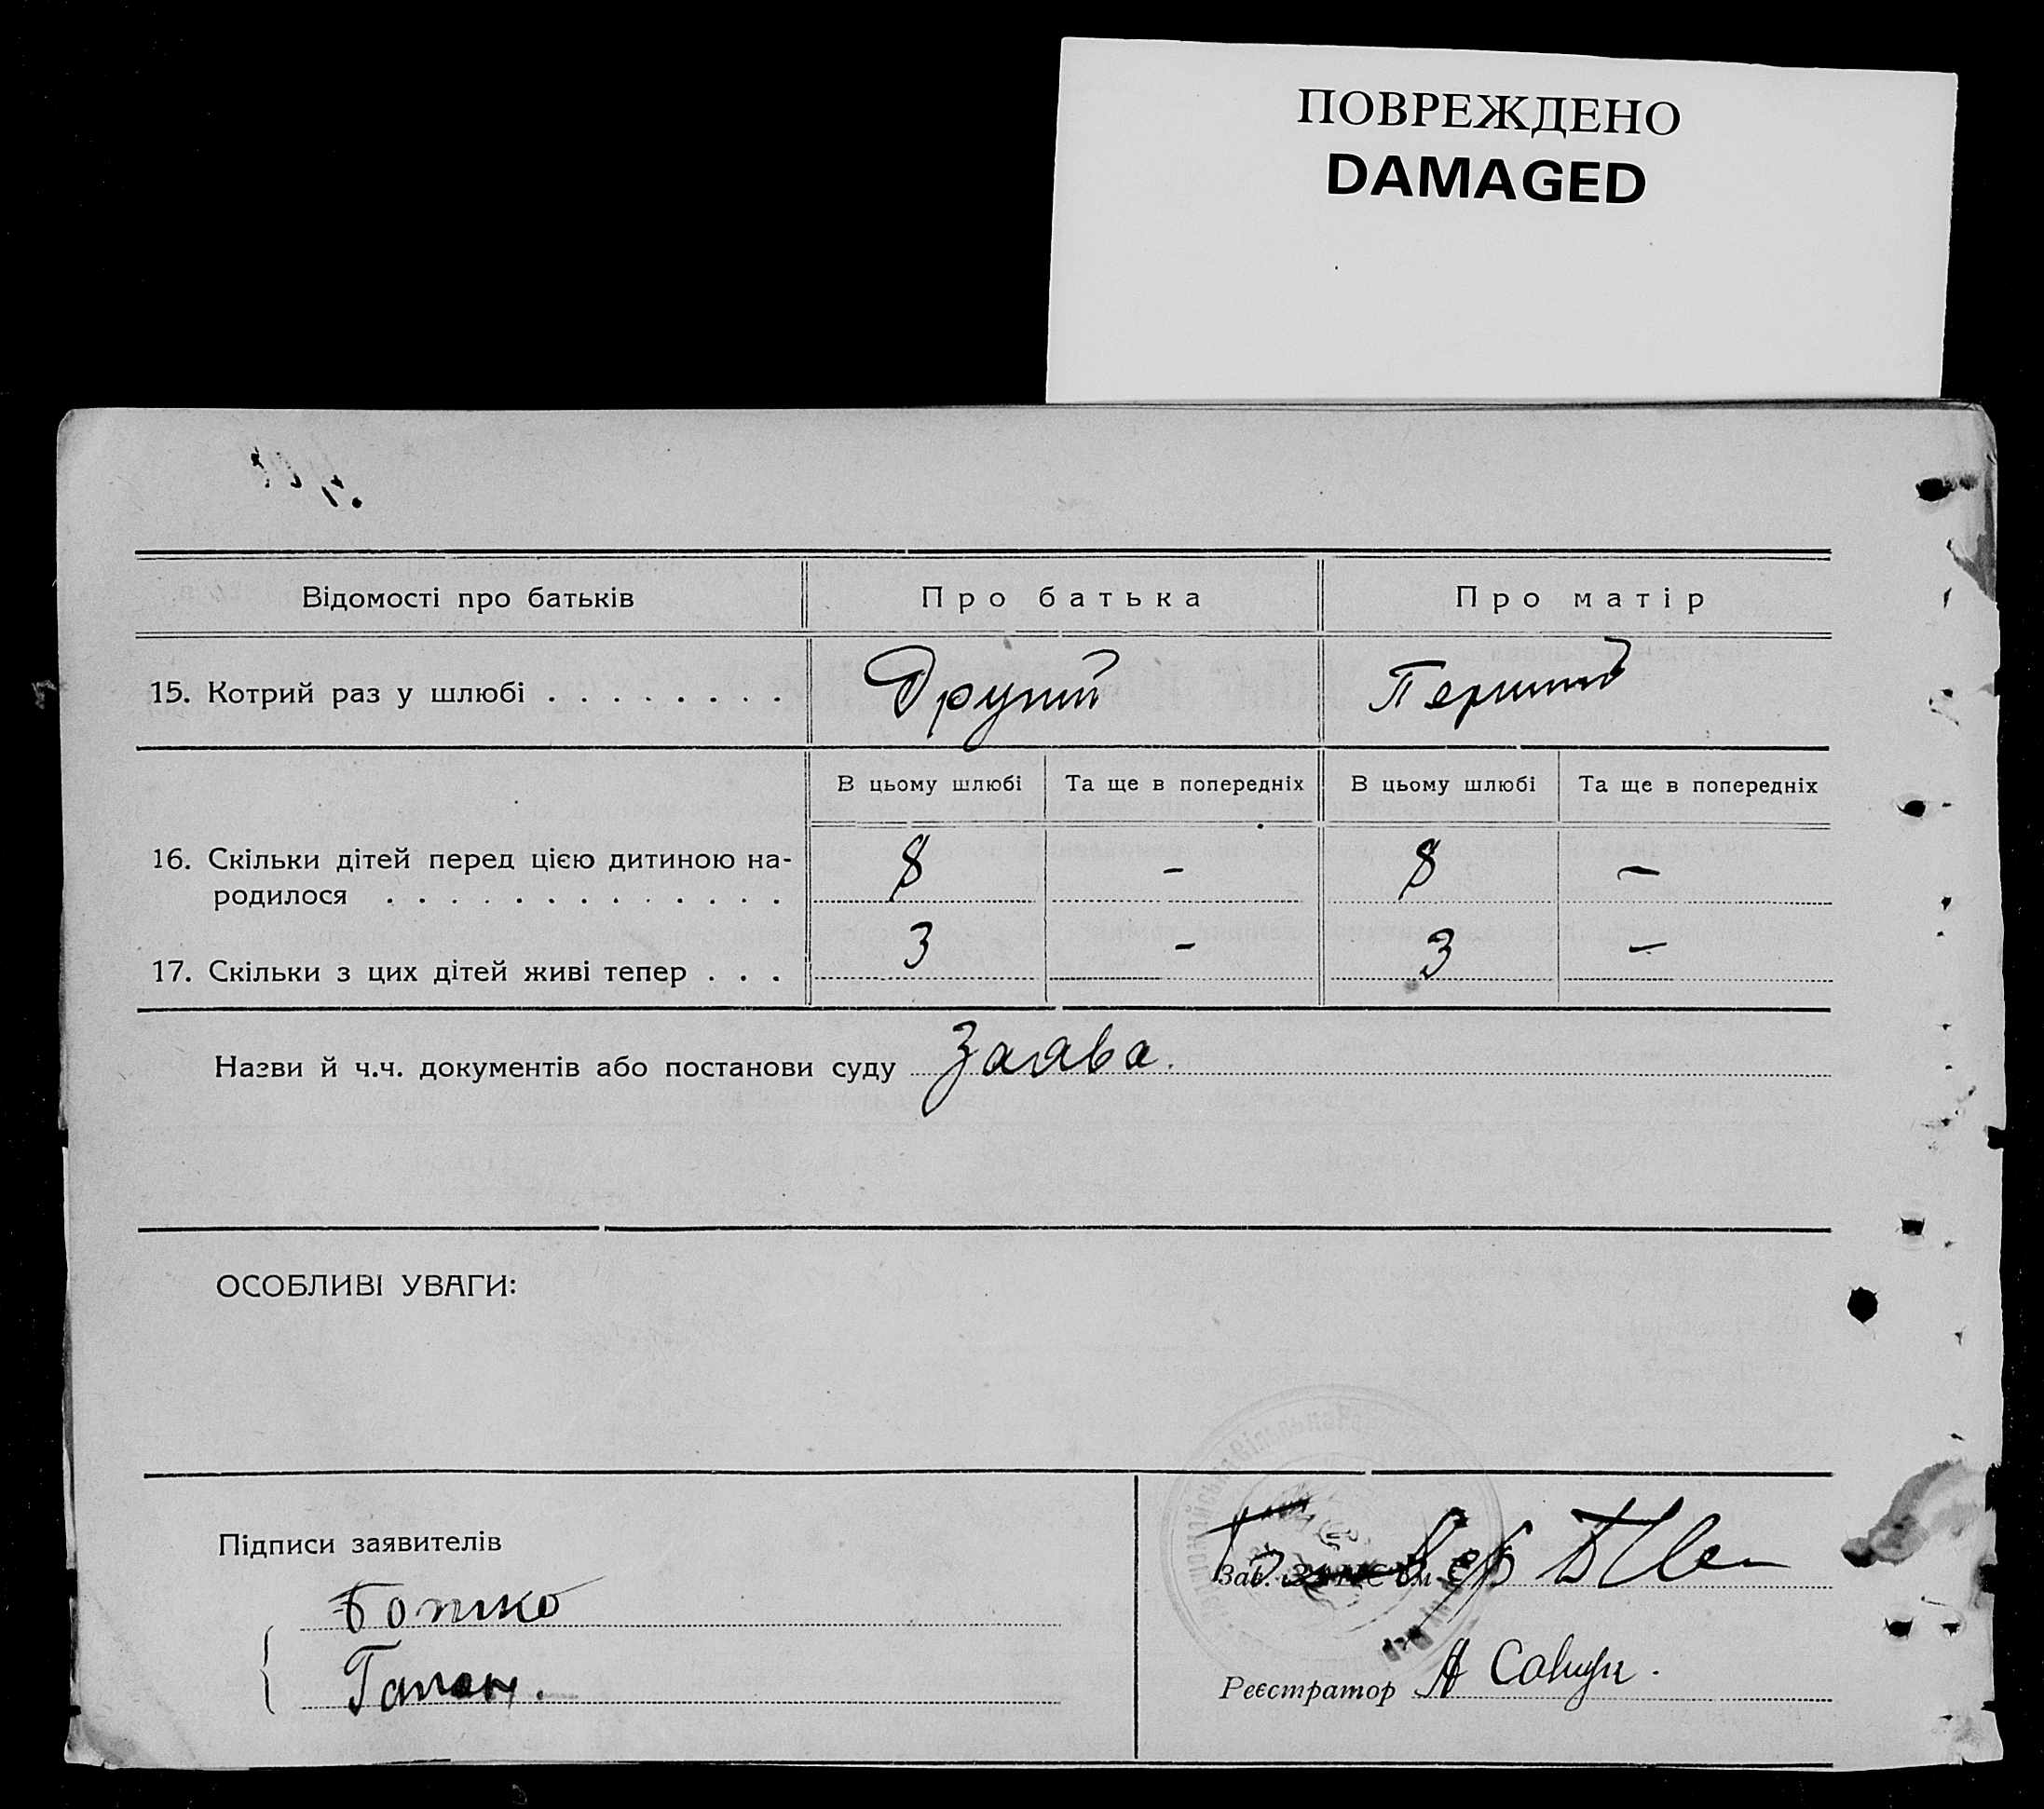 ПОВРЕЖДЕНО
DAMAGED
Відомості про батьків Про батька Про матір
15. Котрий раз у шлюбі . . . . . . . . Другий Перший
В цьому шлюбі Та ще в попередніх В цьому шлюбі Та ще в попередніх
16. Скільки дітей перед цією дитиною на-
родилося . . . . . . . . . . . . . 8 - 8 -
17. Скільки з цих дітей живі тепер . . . 3 - 3 -
Назви й ч.ч. документів або постанови суду Заява.
ОСОБЛИВІ УВАГИ:
Підписи заявителів
Зав.
Реєстратор А